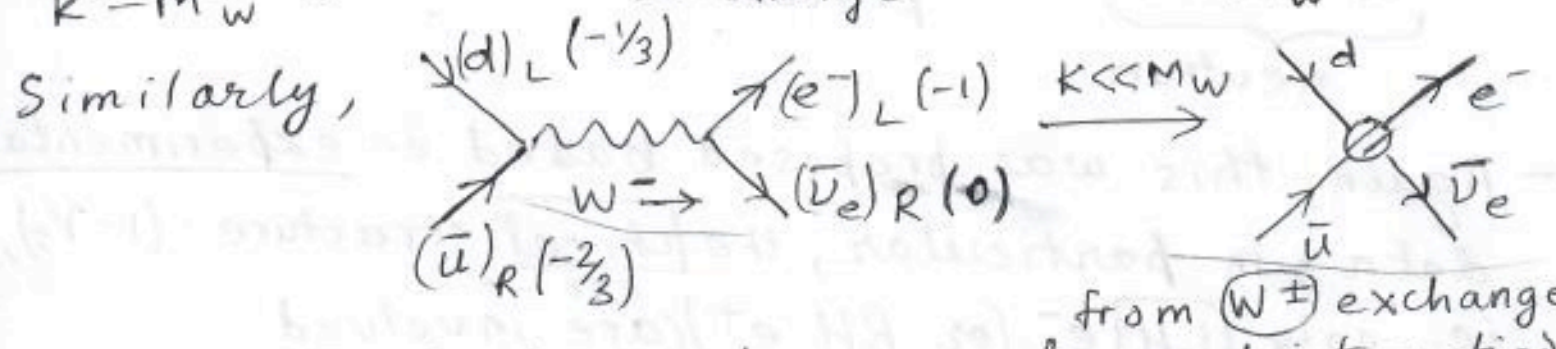 K
M_W
W
Similarly, (d)_L (-1/3) (e⁻)_L (-1) K<<M_W d e⁻
W⁻ → (ν̄_e)_R (0) ν̄_e
(ū)_R (-2/3) ū
from W± exchange